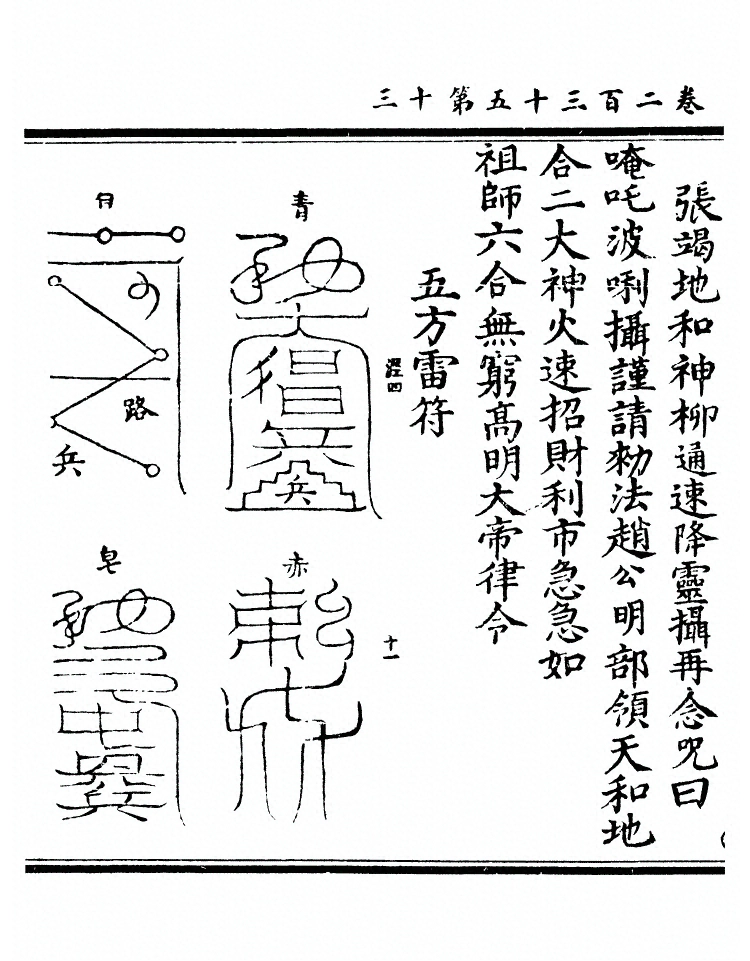 卷二百三十五第十三
張竭地和神柳通速降靈攝再念咒曰
唵吒波唎攝謹請勑法趙公明部領天和地
合二大神火速招財利市急急如
祖師六合無窮高明大帝律令
五方雷符
十一
青
赤
兵
皂
路
兵